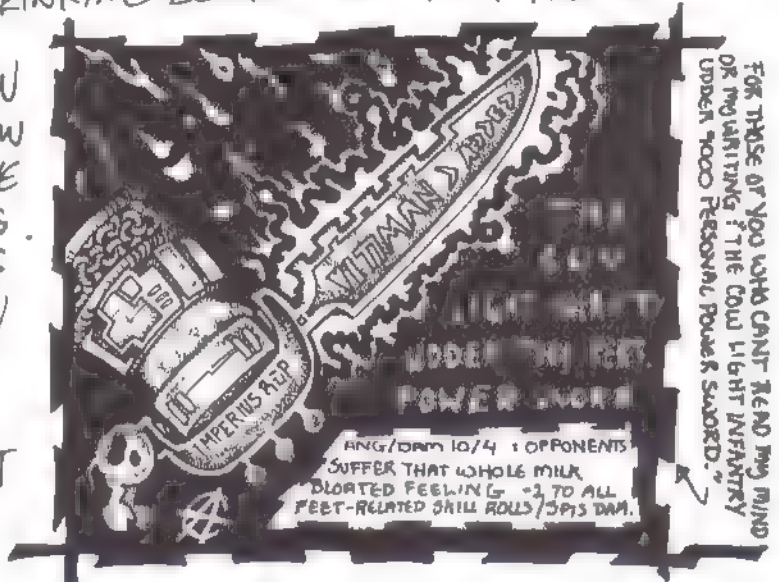 VITIMAN > ADDED
IMPERIUS RÜP
COW
UDDER
POWER SWORD
ANG/DAM 10/4 : OPPONENTS
SUFFER THAT WHOLE MILK
BLOATED FEELING -2 TO ALL
FEET-RELATED SKILL ROLLS/3PTS DAM.
FOR THOSE OF YOU WHO CANT READ MY MIND
OR MY WRITING : "THE COW LIGHT INFANTRY
UDDER 9000 PERSONAL POWER SWORD."